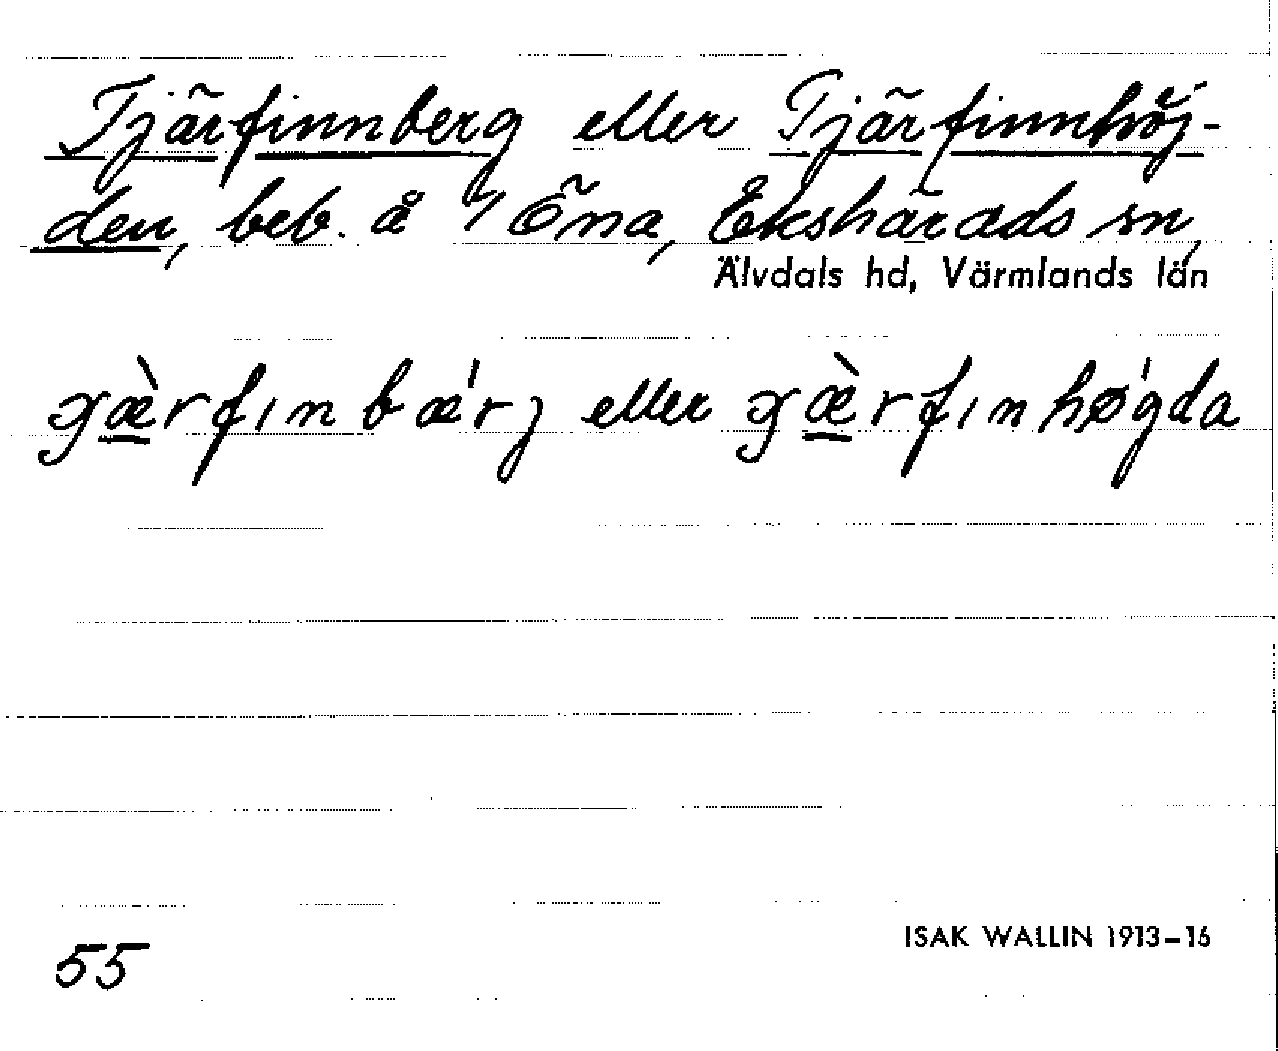 Tjärfinnberg eller Tjärfinnhöj-
den, beb. å 1/1 Öna, Ekshärads sn,
Älvdals hd, Värmlands län
eller
55
ISAK WALLIN 1913–16